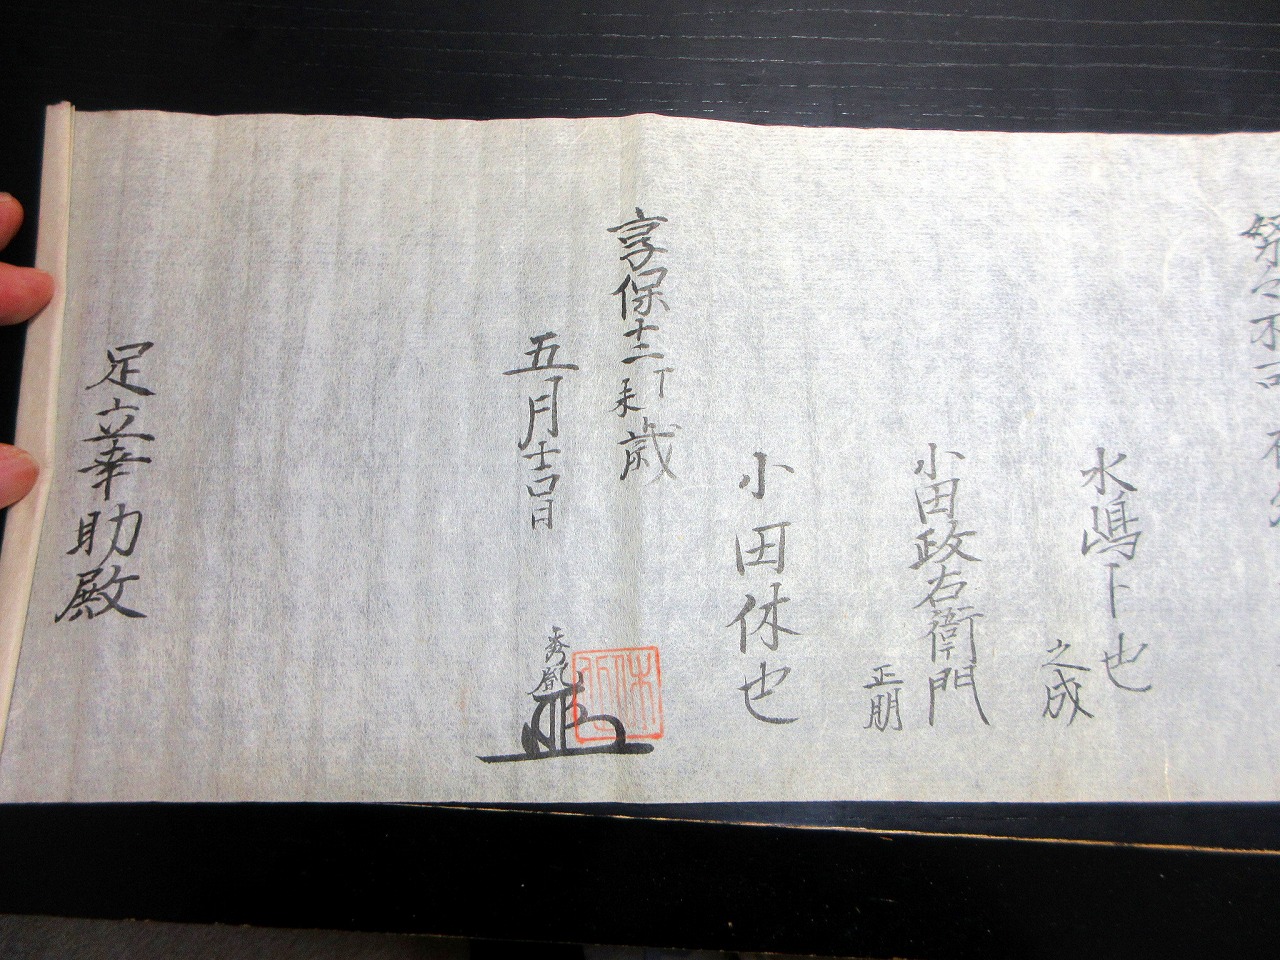 水嶋卜也
之成
小田政右衛門
正朋
小田休也
享保十二丁未歳
五月吉日
秀胤
足立幸助殿